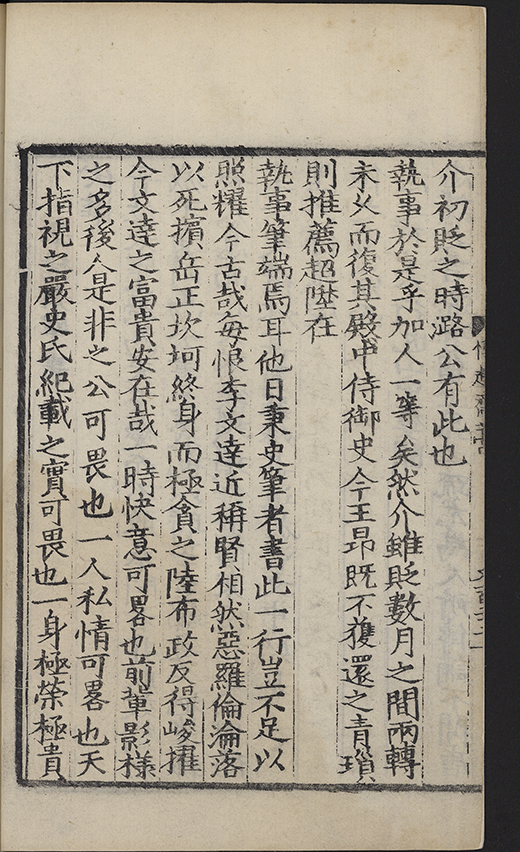 介初貶之時潞公有此也
執事於是乎加人一等矣然介雖貶數月之間兩轉
未乆而復其殿中侍御史今王昂既不獲還之青瑣
則推薦超陞在
執事筆端焉耳他日秉史筆者書此一行豈不足以
照耀今古哉每恨李文達近稱賢相然惡羅倫淪落
以死擯岳正坎坷終身而極貪之陸布政反得峻擢
今文達之富貴安在哉一時快意可畧也前輩影様
之多後人是非之公可畏也一人私情可畧也天
下指視之嚴史氏紀載之實可畏也一身極榮極貴